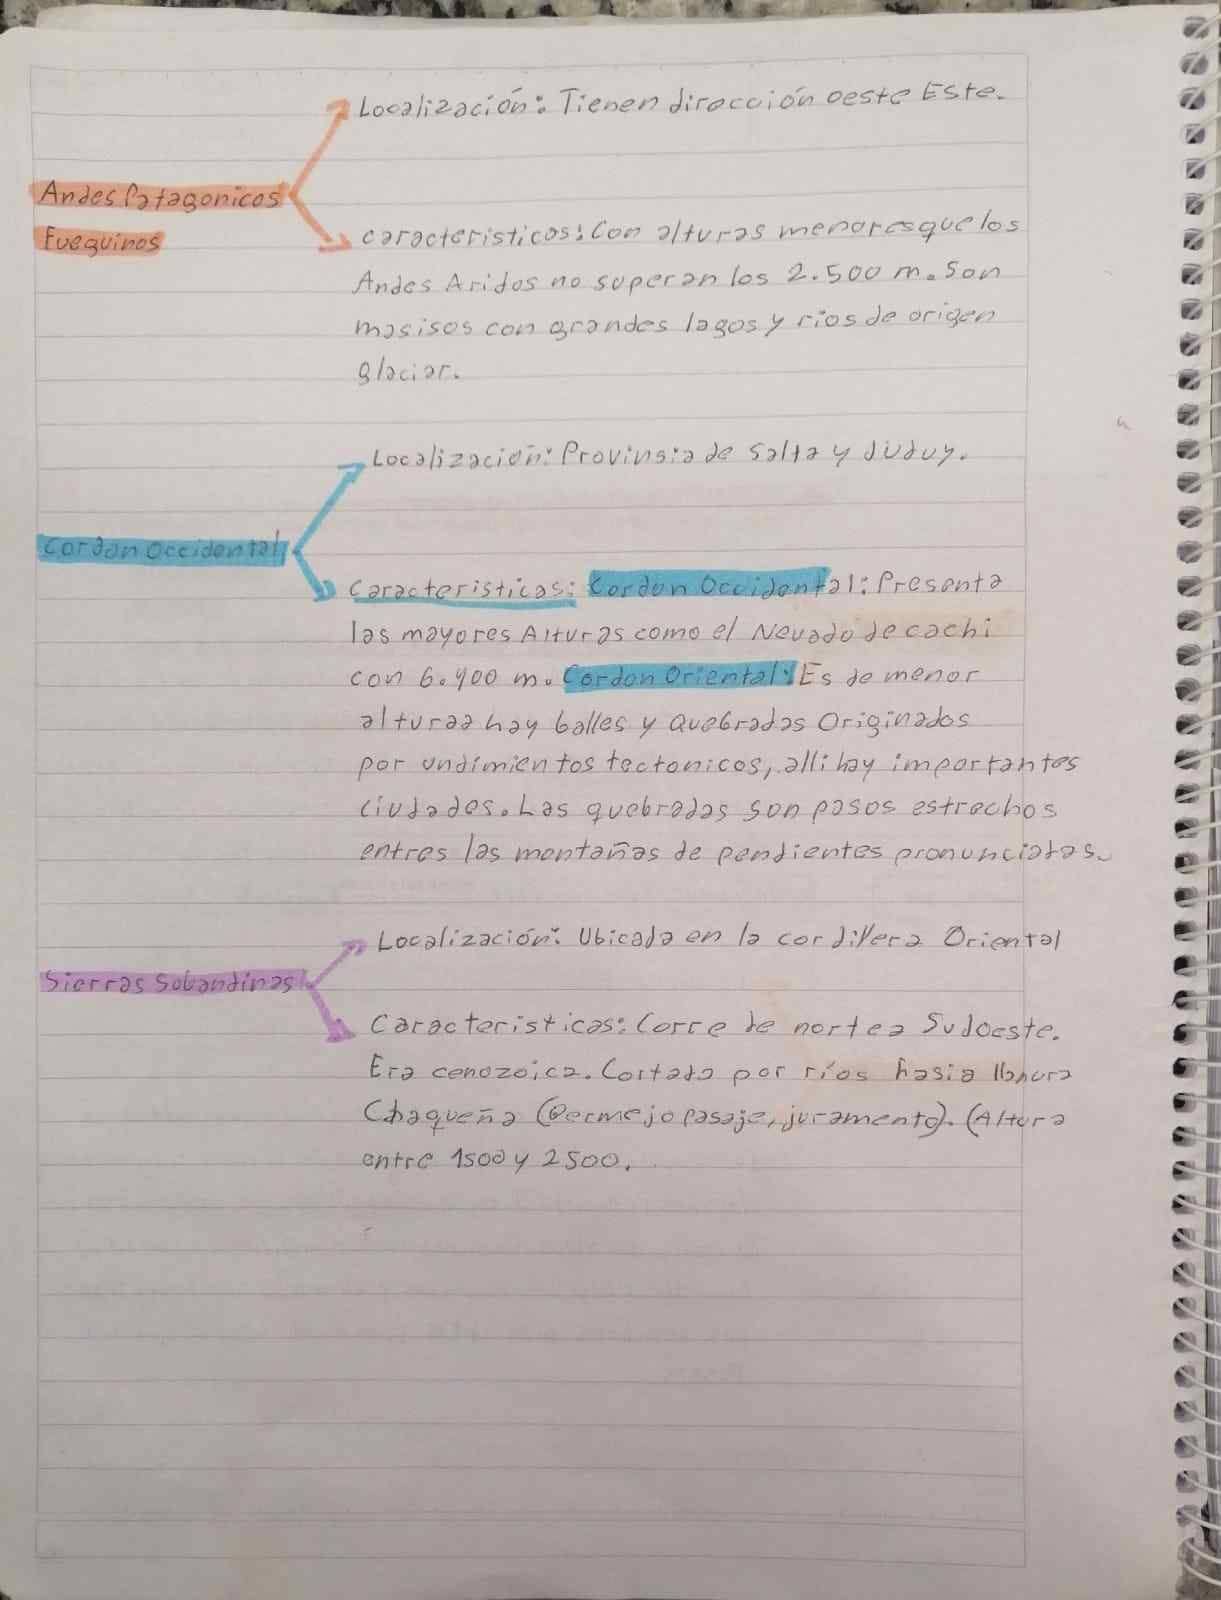 Localización: Tienen dirección oeste Este.
Andes Patagonicos
Fueguinos
características: Con alturas menores que los
Andes Aridos no superan los 2.500 m. Son
masisos con grandes lagos y rios de origen
glaciar.
Localización: Provinsia de Salta y Jujuy.
Cordon Occidental
Características: Cordon Occidental: Presenta
las mayores Alturas como el Nevado de cachi
con 6.400 m. Cordon Oriental: Es de menor
alturaa hay balles y quebradas Originados
por undimientos tectonicos, alli hay importantes
ciudades. Las quebradas son pasos estrechos
entres las montañas de pendientes pronunciadas.
Localización: Ubicada en la cordillera Oriental
Sierras Subandinas
Características: Corre de norte a Sudoeste.
Era cenozoica. Cortada por ríos hasia llanura
Chaqueña (Bermejo pasaje, juramento). (Altura
entre 1500 y 2500.